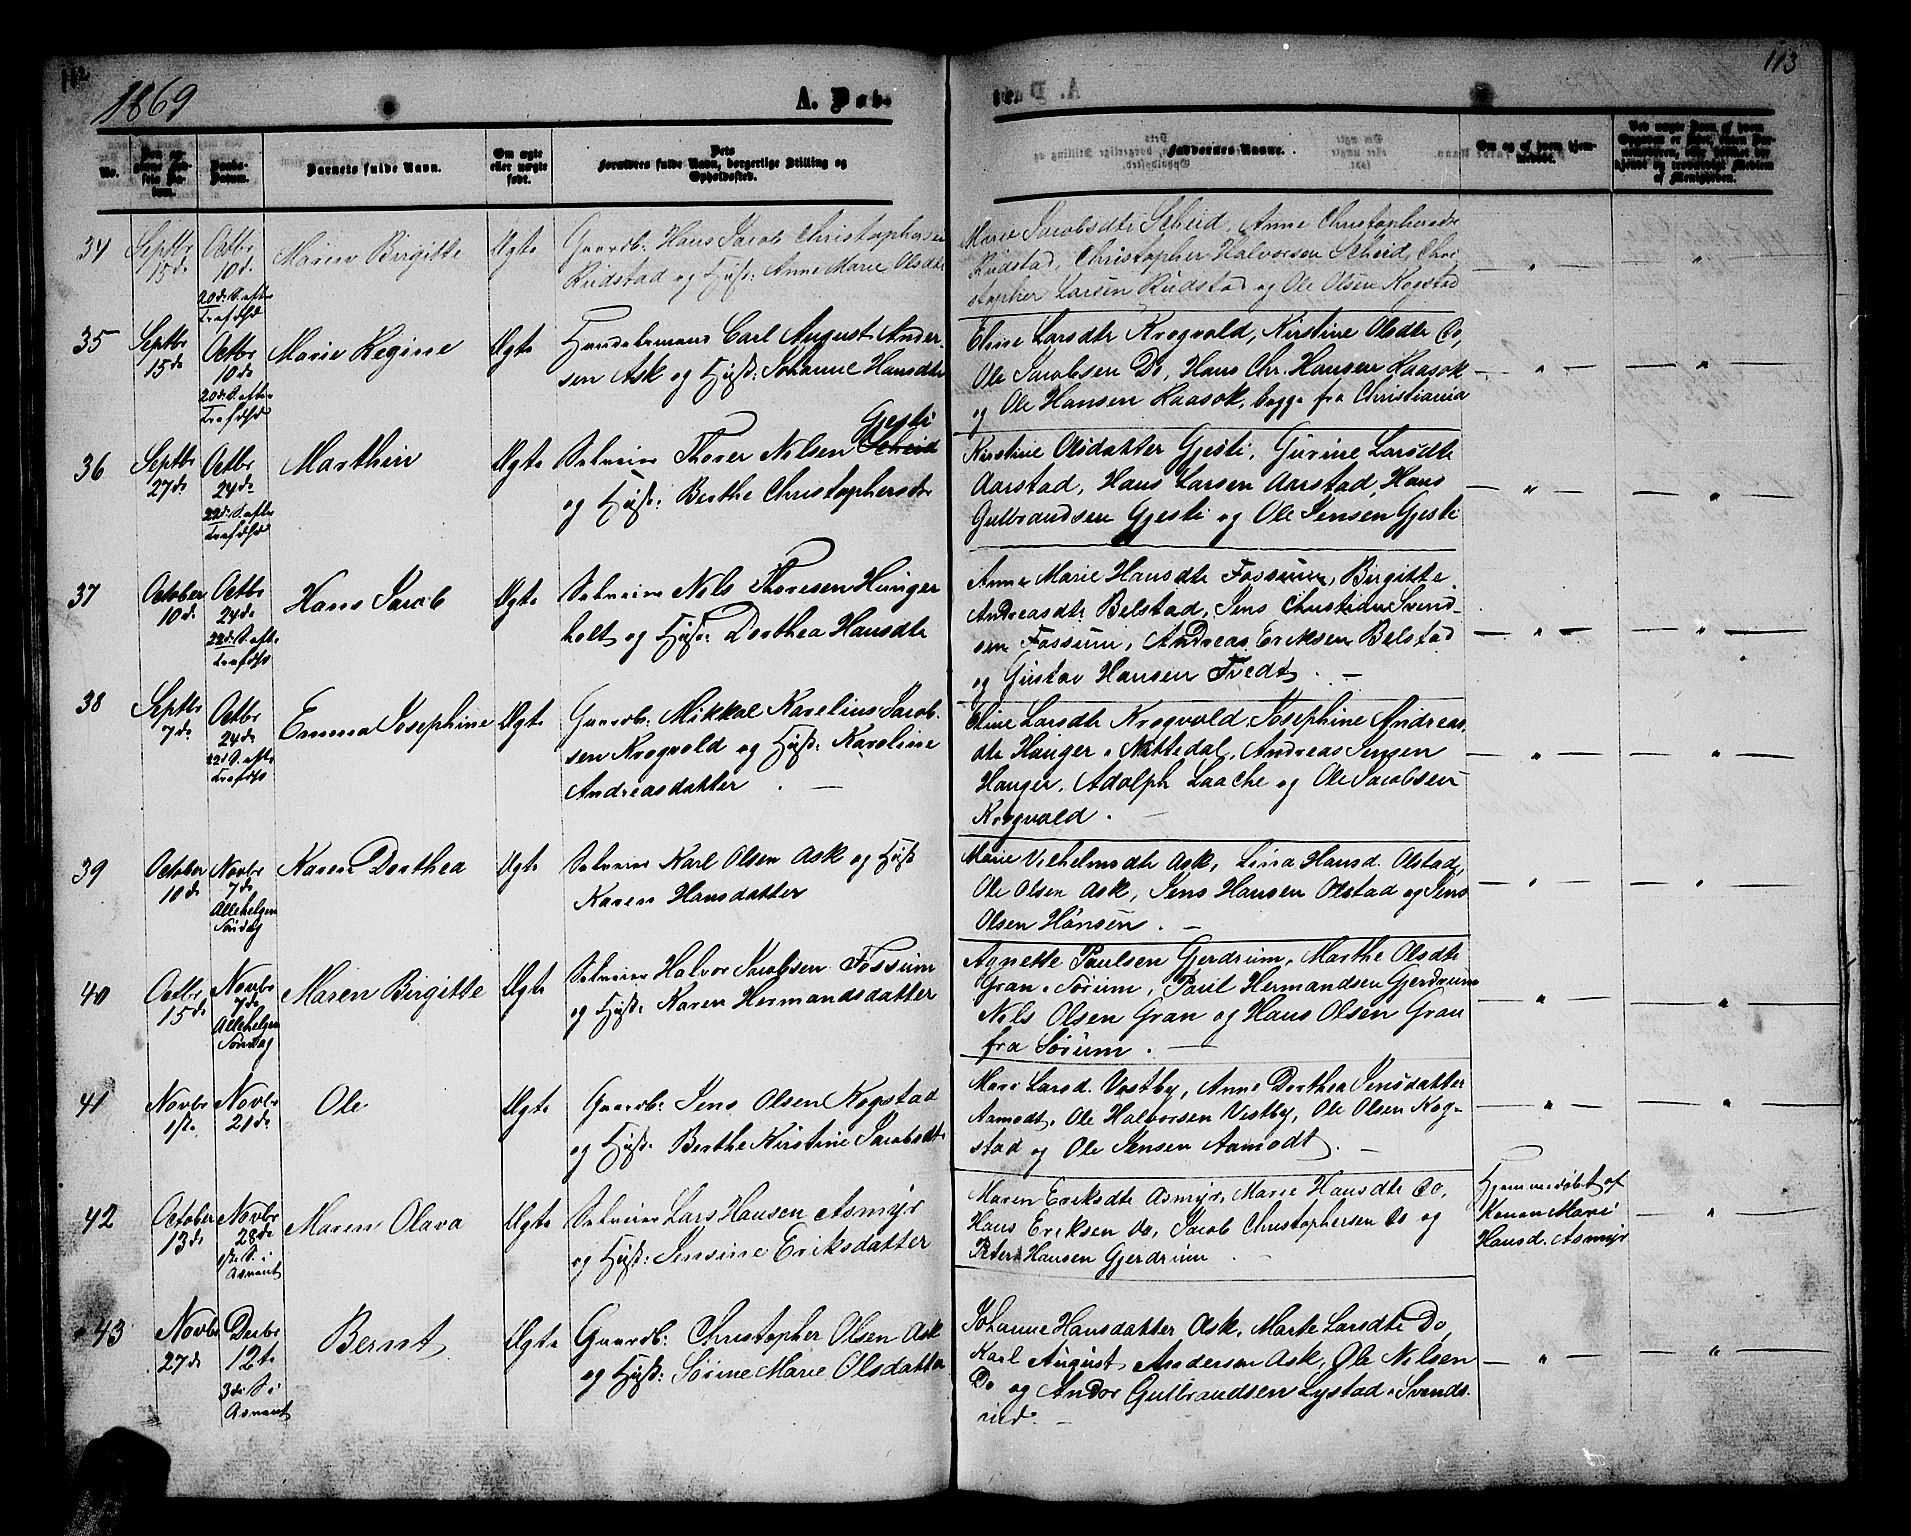 112
1869
A. Døb-
113
No.
Barnets fulde Navn.
Om ægte
eller uægte
født.
Dets
Forældres fulde Navn, borgerlige Stilling og
Opholdssted.
Faddernes Navne.
Om og af hvem hjem-
medøbt.
34
Septbr
15de
Octbr
10de
20de S. efter
Trefdshd
Maren Birgitte
Ægte
Gaardb: Hans Jacob Christophersen
Rudstad og Hust: Anne Marie Olsdtr
Marie Jacobsdtr Scheid, Anne Christophersdtr
Rudstad, Christopher Halvorsen Scheid, Chri
stopher Larsen Rudstad og Ole Olsen Kogstad
— „ —
— „ —
35
Septbr
15de
Octbr
10de
20de S. efter
Trefdshd
Marie Regine
Ægte
Handelsmand Carl August Ander-
sen Ask og Hust: Johanne Hansdtr
Eline Larsdtr Krogvold, Kirstine Olsdtr Do,
Ole Jacobsen Do, Hans Chr. Hansen Haasok
og Ole Hansen Haasok, begge fra Christiania
— „ —
— „ —
36
Septbr
27de
Octbr
24de
22de S. efter
Trefdshd
Marthin
Ægte
Gjesti
Selveier Thorer Nilsen Scheid
og Hust: Berthe Christophersdtr
Kirstine Olsdatter Gjesti, Gurine Larsdtr
Aarstad, Hans Larsen Aarstad, Hans
Gulbrandsen Gjesti og Ole Jensen Gjesti
— „ —
— „ —
37
October
10de
Octbr
24de
22de S. efter
Trefdshd
Hans Jacob
Ægte
Selveier Nels Thoresen Hunger
holt og Hust: Dorthea Hansdtr
Anne Marie Hansdtr Fossum, Birgitte
Andreasdtr Belstad, Jens Christian Svend-
sen Fossum, Andreas Eriksen Belstad
og Gustav Hansen Tvedt. —
— „ —
— „ —
38
Septbr
7de
Octbr
24de
22d S. efter
Trefdshd
Emma Josephine
Ægte
Gaardb: Mikkal Karelius Jacob-
sen Krogvold og Hust: Karoline
Andreasdatter. —
Eline Larsdtr Krogvold, Josephine Andreas
dtr Hauger i Nittedal, Andreas Jensen
Hauger, Adolph Laache og Ole Jacobsen
Krogvold. —
— „ —
— „ —
39
October
10de
Novbr
7de
Allehelgen
Søndag
Karen Dorthea
Ægte
Selveier Karl Olsen Ask og Hust
Karen Hansdatter
Marie Vilhelmsdtr Ask, Lina Hansd. Olstad,
Ole Olsen Ask, Jens Hansen Olstad og Jens
Olsen Hønsen. —
— „ —
— „ —
40
Octbr
15de
Novbr
7de
Allehelgen
Søndag
Maren Birgitte
Ægte
Selveier Halvor Jacobsen Fossum
og Hust: Karen Hermandsdatter
Agnette Paulsen Gjerdrum, Marthe Olsdtr
Gran i Sørum, Paul Hermandsen Gjerdrum
Nils Olsen Gran og Hans Olsen Gran
fra Sørum. —
„
„
41
Novbr
1ste
Novbr
21de
Ole
Ægte
Gaardb: Jens Olsen Kogstad
og Hust: Berthe Kirstine Jacobsdtr
Mari Larsd. Vestby, Anne Dorthea Jensdatter
Aamodt, Ole Halvorsen Vestby, Ole Olsen Kog-
stad og Ole Jensen Aamodt. —
— „ —
— „ —
42
October
13de
Novbr
28de
1ste S. i
Advent
Maren Olava
Ægte
Selveier Lars Hansen Asmyr
og Hust: Jensine Eriksdatter
Maren Eriksdtr Asmyr, Marie Hansdtr Do,
Hans Eriksen Do, Jacob Christophersen Do og
Peter Hansen Gjerdrum —
Hjemmedøbt af
Konen Mari
Hansd. Asmyr
— „ —
43
Novbr
27de
Decbr
12te
3die S. i
Advent
Bernt
Ægte
Gaardb: Christopher Olsen Ask
og Hust: Sørine Marie Olsdatter
Johanne Hansdatter Ask, Marte Larsdtr Do,
Karl August Andersen Ask, Ole Nilsen
Do og Andor Gulbrandsen Lystad i Svends
rud. —
— „ —
— „ —